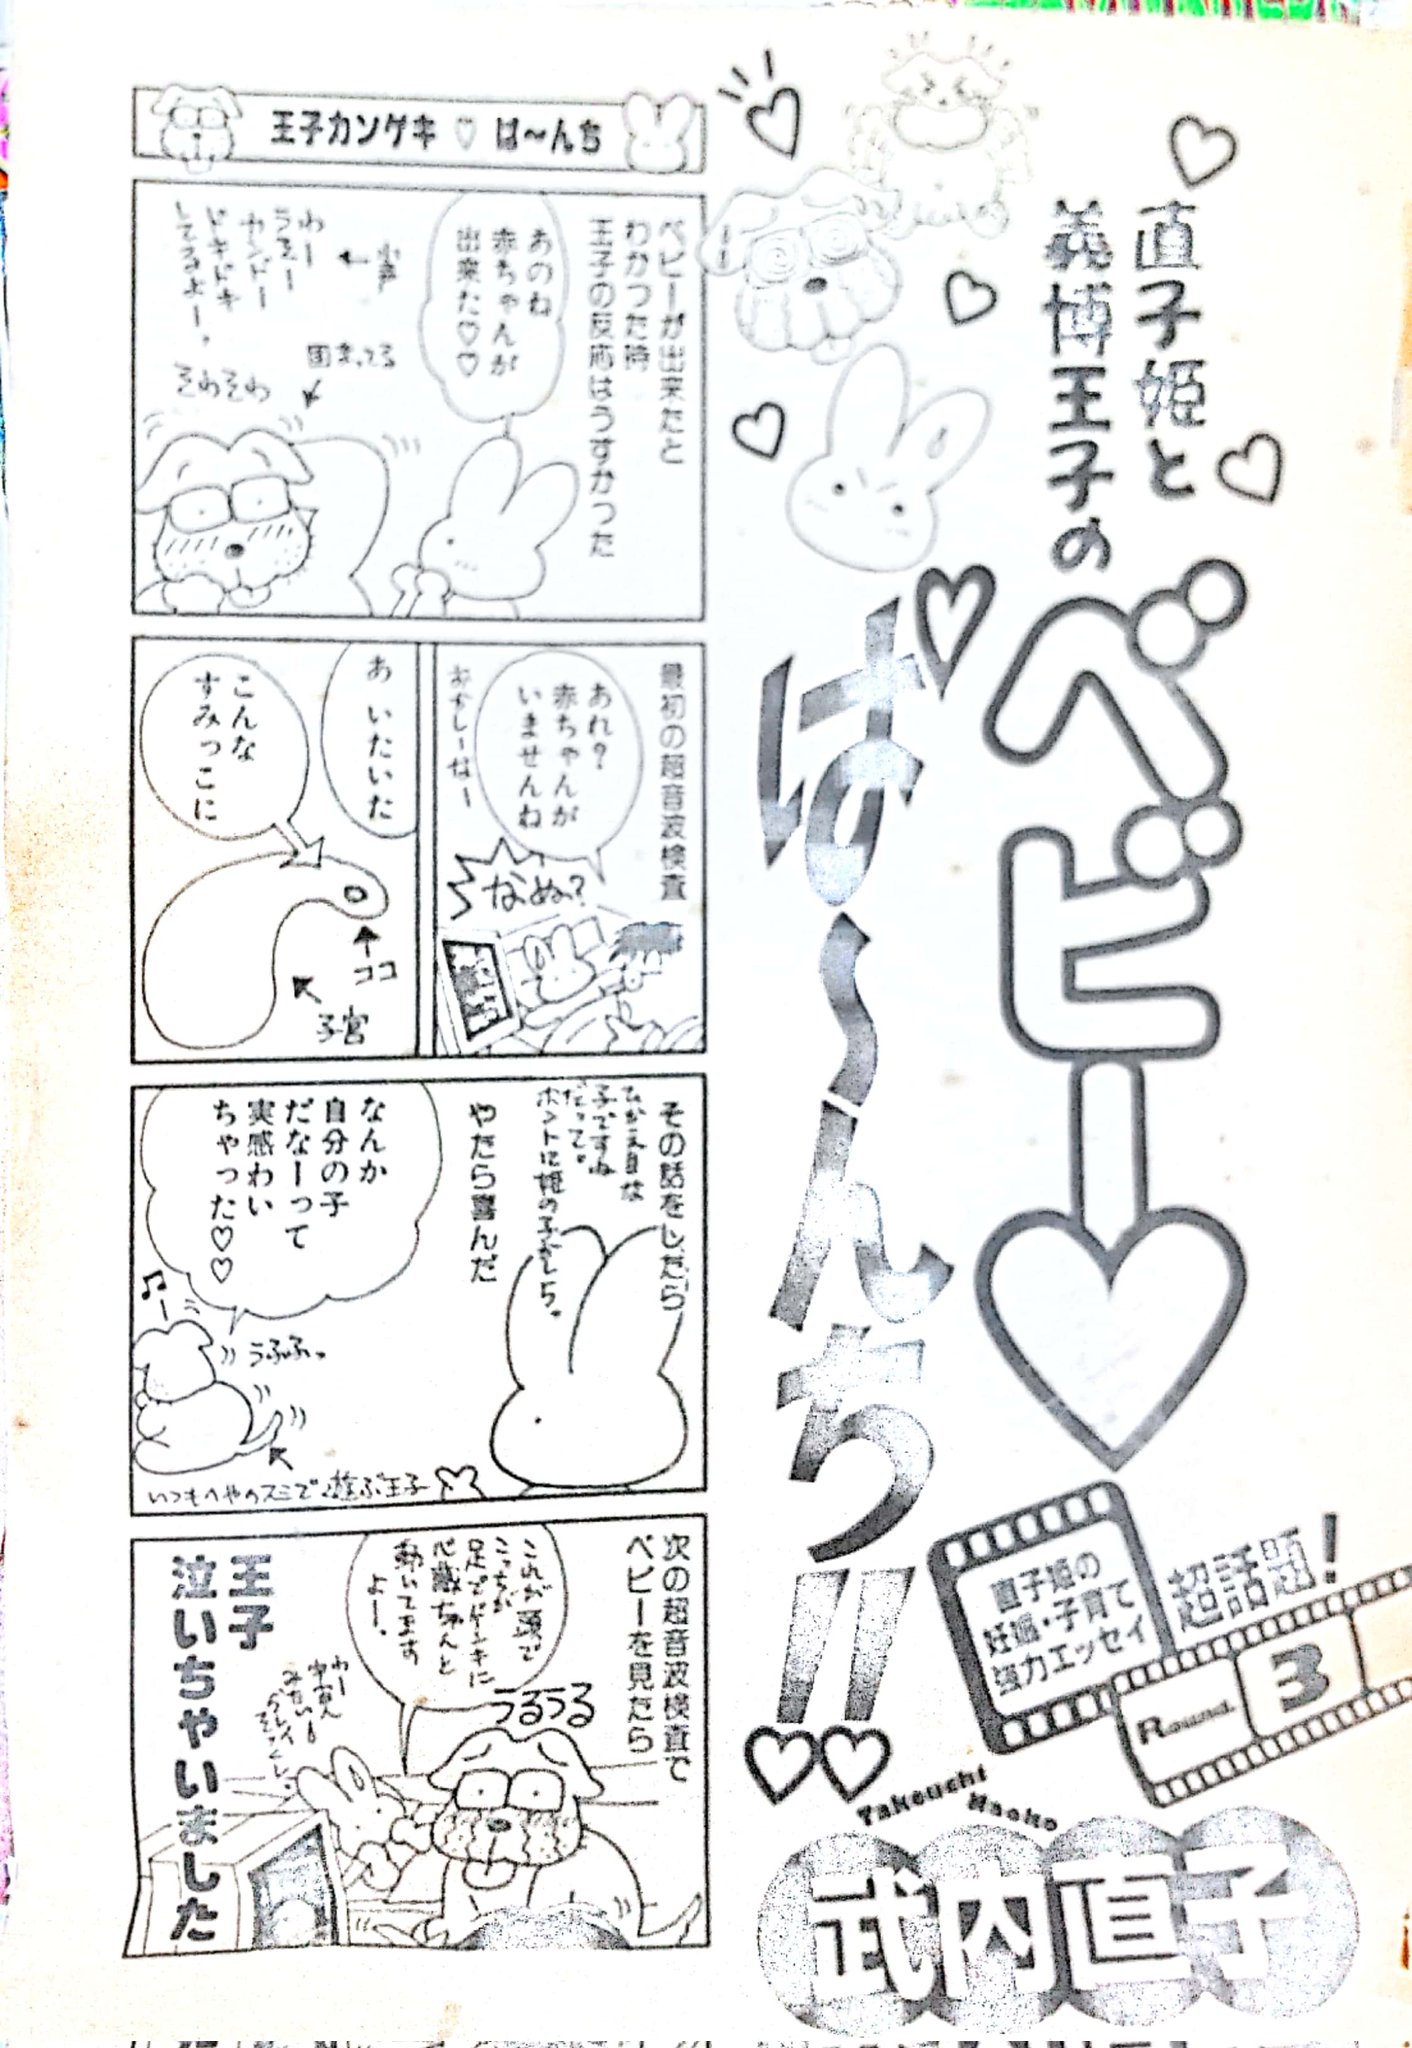 直子姫と
義博王子の
ベビー♡
ば〜んち!!♡♡
超話題!
直子姫の
妊娠・子育て
強力エッセイ
Round 3
Takeuchi Naoko
武内直子
王子カンゲキ♡ば〜んち
ベビーが出来たと
わかった時
王子の反応はうすかった
あのね
赤ちゃんが
出来た♡♡
小声
わー
うそー
カンドー
ドキドキ
してるよー。
固まってる
そわそわ
最初の超音波検査
あれ?
赤ちゃんが
いませんね
おかしーなー
なぬっ?
あ いたいた
こんな
すみっこに
ココ
子宮
その話をしたら
ひかえ目な
子ですね
だって。
ホントに姫の子かしら。
やたら喜んだ
なんか
自分の子
だなーって
実感わい
ちゃった♡♡
うふふっ
いつもへやのスミで遊ぶ王子
次の超音波検査で
ベビーを見たら
これが頭で
こっちが
足でドンキに
心臓ちゃんと
動いてます
よー。
うるうる
わー
宇宙人
みたい!
王子
泣いちゃいました